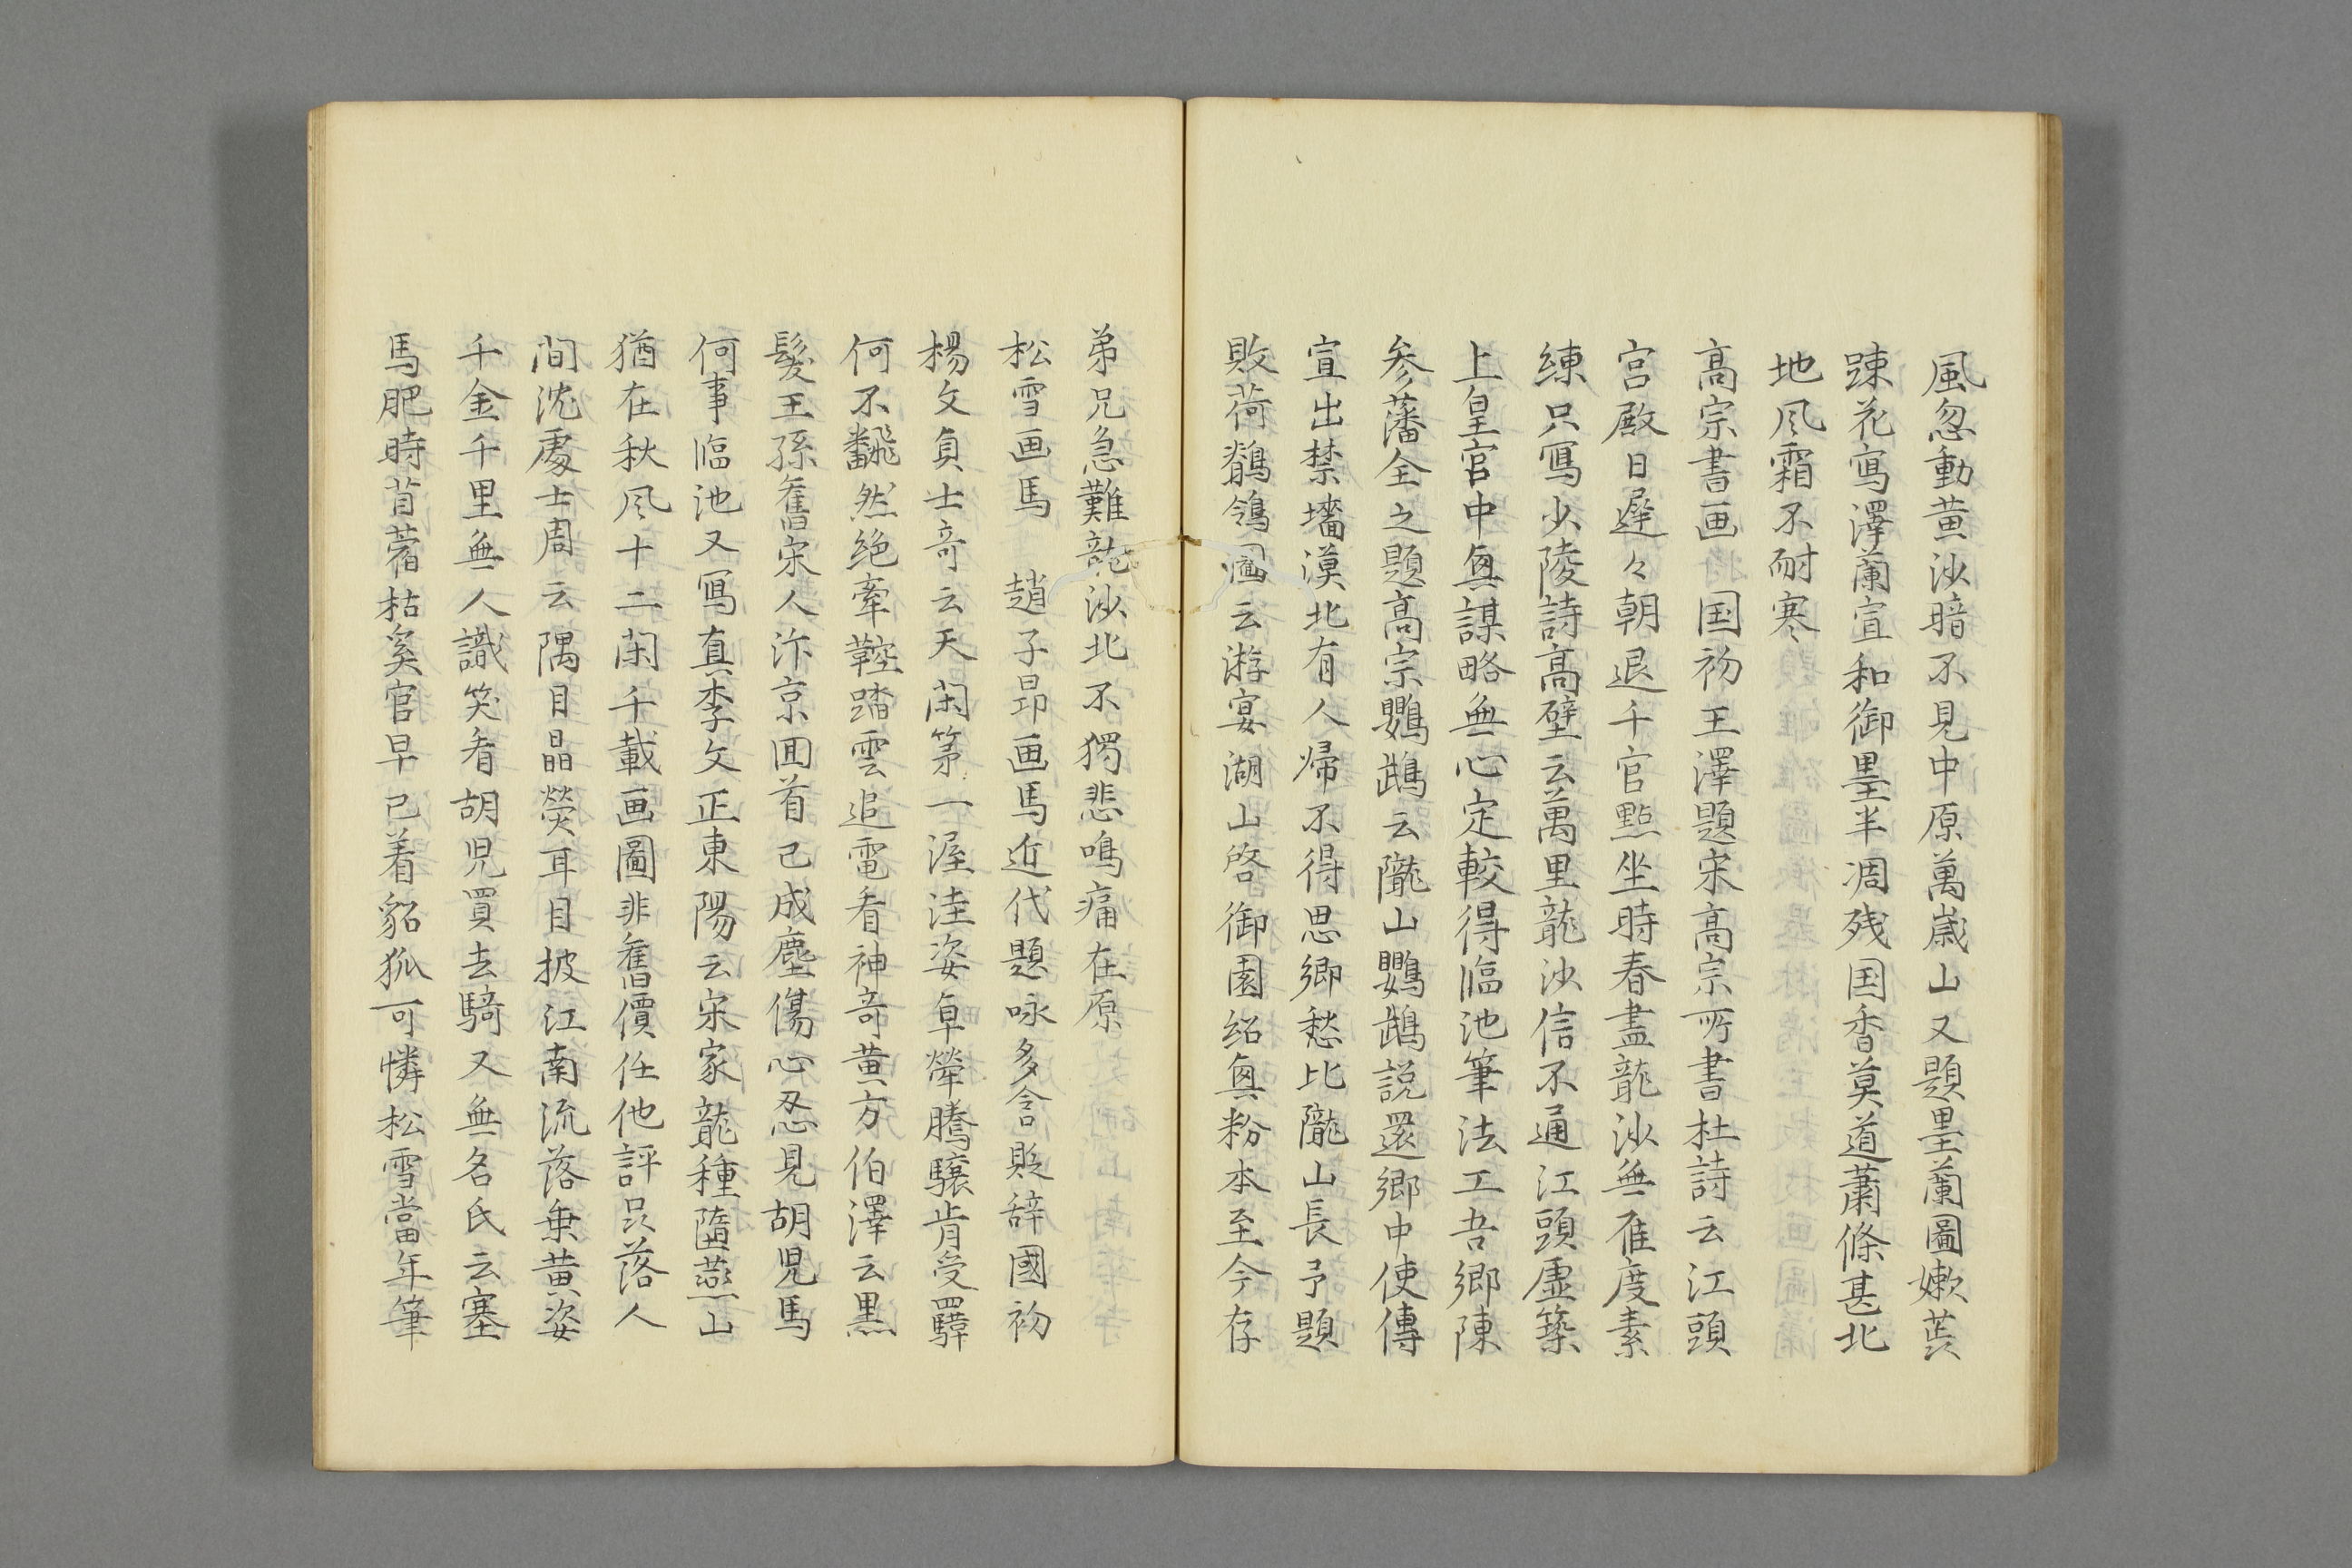 風忽動黄沙暗不見中原萬歳山又題墨蘭圖嫩蕊
踈花寫澤蘭宣和御墨半凋残国香莫道蕭條甚北
地风霜不耐寒
高宗書画 国初王澤題宋高宗所書杜詩云江頭
宮殿日遲々朝退千官㸃坐時春盡龍沙無雁度素
練只寫少陵詩高壁云萬里龍沙信不通江頭虚築
上皇宮中無謀略無心定較得臨池筆法工吾郷陳
参藩全之題高宗鸚鵡云隴山鸚鵡説還郷中使傳
宣出禁墻漠北有人帰不得思郷愁比隴山長予題
敗荷鶺鴒圖云游宴湖山啓御園紹興粉本至今存
弟兄急難龍沙北不獨悲鳴痛在原
松雪画馬 趙子昂画馬近代題咏多含貶辞國初
楊文貞士竒云天闲第一渥洼姿阜犖騰驤肯受羈
何不飜然絶牽鞚踏雲追電看神竒黄方伯澤云黒
髮王孫舊宋人汴京囬首已成塵傷心忍見胡児馬
何事臨池又寫真李文正東陽云宋家龍種墮燕山
猶在秋风十二闲千載画圖非舊價任他評品落人
间沈處士周云隅目晶熒耳目披江南流落乗黄姿
千金千里無人識笑看胡児買去騎又無名氏云塞
馬肥時苜蓿枯奚官早已着貂狐可憐松雪當年筆